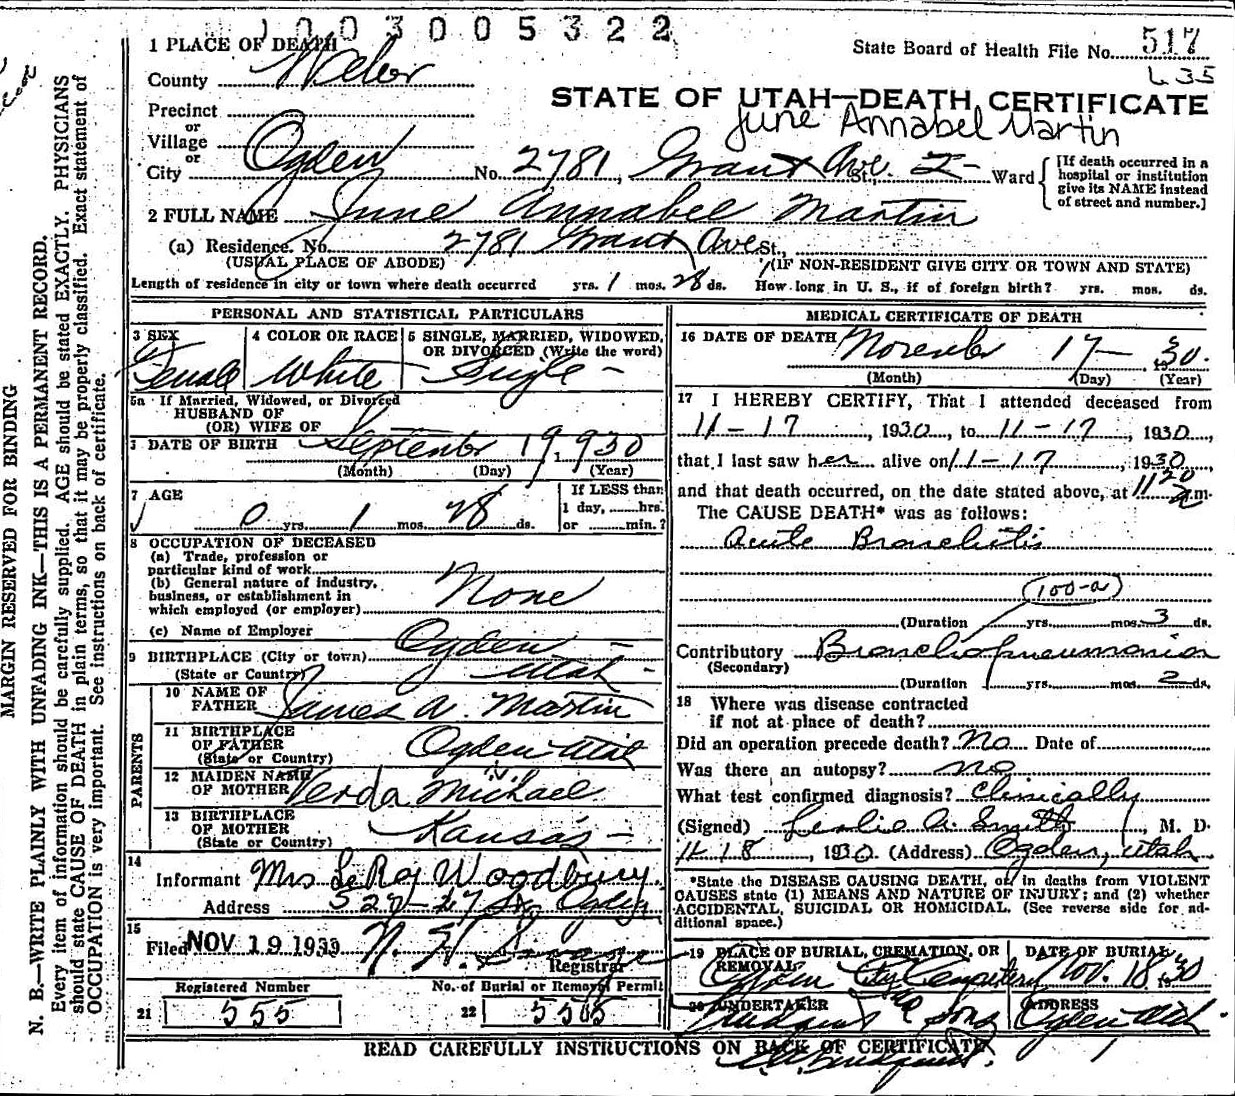 1003005322
1 PLACE OF DEATH
State Board of Health File No. 517
635
County Weber
STATE OF UTAH—DEATH CERTIFICATE
June Annabel Martin
Precinct
or
Village
or
City Ogden No. 2781, Grant Ave. St., 2 Ward
[If death occurred in a hospital or institution give its NAME instead of street and number.]
2 FULL NAME June Annabel Martin
(a) Residence. No. 2781 Grant Ave St.,
(USUAL PLACE OF ABODE) (IF NON-RESIDENT GIVE CITY OR TOWN AND STATE)
Length of residence in city or town where death occurred yrs. 1 mos. 28 ds. How long in U. S., if of foreign birth? yrs. mos. ds.
PERSONAL AND STATISTICAL PARTICULARS
3 SEX
Female
4 COLOR OR RACE
White
5 SINGLE, MARRIED, WIDOWED,
OR DIVORCED (Write the word)
Single -
5a If Married, Widowed, or Divorced
HUSBAND OF
(OR) WIFE OF
DATE OF BIRTH September 19, 1930
(Month) (Day) (Year)
7 AGE
0 yrs. 1 mos. 28 ds.
If LESS than
1 day, hrs.
or min.?
8 OCCUPATION OF DECEASED
(a) Trade, profession or
particular kind of work
(b) General nature of industry,
business, or establishment in
which employed (or employer)
None
(c) Name of Employer
9 BIRTHPLACE (City or town) Ogden -
(State or Country) Utah -
PARENTS
10 NAME OF
FATHER James A. Martin
11 BIRTHPLACE
OF FATHER Ogden Utah
(State or Country)
12 MAIDEN NAME
OF MOTHER Verda Michael
13 BIRTHPLACE
OF MOTHER Kansas -
(State or Country)
14
Informant Mrs LeRoy Woodbury.
Address 529-27 St Ogden
15
Filed NOV 19 1930
Registrar
Registered Number No. of Burial or Removal Permit
21 555 22 5505
MEDICAL CERTIFICATE OF DEATH
16 DATE OF DEATH November 17— 1930.
(Month) (Day) (Year)
17 I HEREBY CERTIFY, That I attended deceased from
11-17, 1930, to 11-17, 1930,
that I last saw her alive on 11-17, 1930
and that death occurred, on the date stated above, at 11 20 a.m.
The CAUSE DEATH* was as follows:
Acute Bronchitis
(100-a)
(Duration yrs. mos. 3 ds.
Contributory Bronchopneumonia
(Secondary)
(Duration yrs. mos. 2 ds.
18 Where was disease contracted
if not at place of death?
Did an operation precede death? No Date of
Was there an autopsy? no
What test confirmed diagnosis? Clinically
(Signed) Leslie A. Smith, M. D.
11-18, 1930. (Address) Ogden, Utah
*State the DISEASE CAUSING DEATH, or in deaths from VIOLENT
CAUSES state (1) MEANS AND NATURE OF INJURY; and (2) whether
ACCIDENTAL, SUICIDAL OR HOMICIDAL. (See reverse side for ad-
ditional space.)
19 PLACE OF BURIAL, CREMATION, OR
REMOVAL
Ogden City Cemetery
DATE OF BURIAL
Nov. 18 1930
20 UNDERTAKER
& Sons
ADDRESS
Ogden Utah
READ CAREFULLY INSTRUCTIONS ON BACK OF CERTIFICATE
MARGIN RESERVED FOR BINDING
N. B.—WRITE PLAINLY WITH UNFADING INK—THIS IS A PERMANENT RECORD.
Every item of information should be carefully supplied. AGE should be stated EXACTLY. PHYSICIANS
should state CAUSE OF DEATH in plain terms, so that it may be properly classified. Exact statement of
OCCUPATION is very important. See instructions on back of certificate.